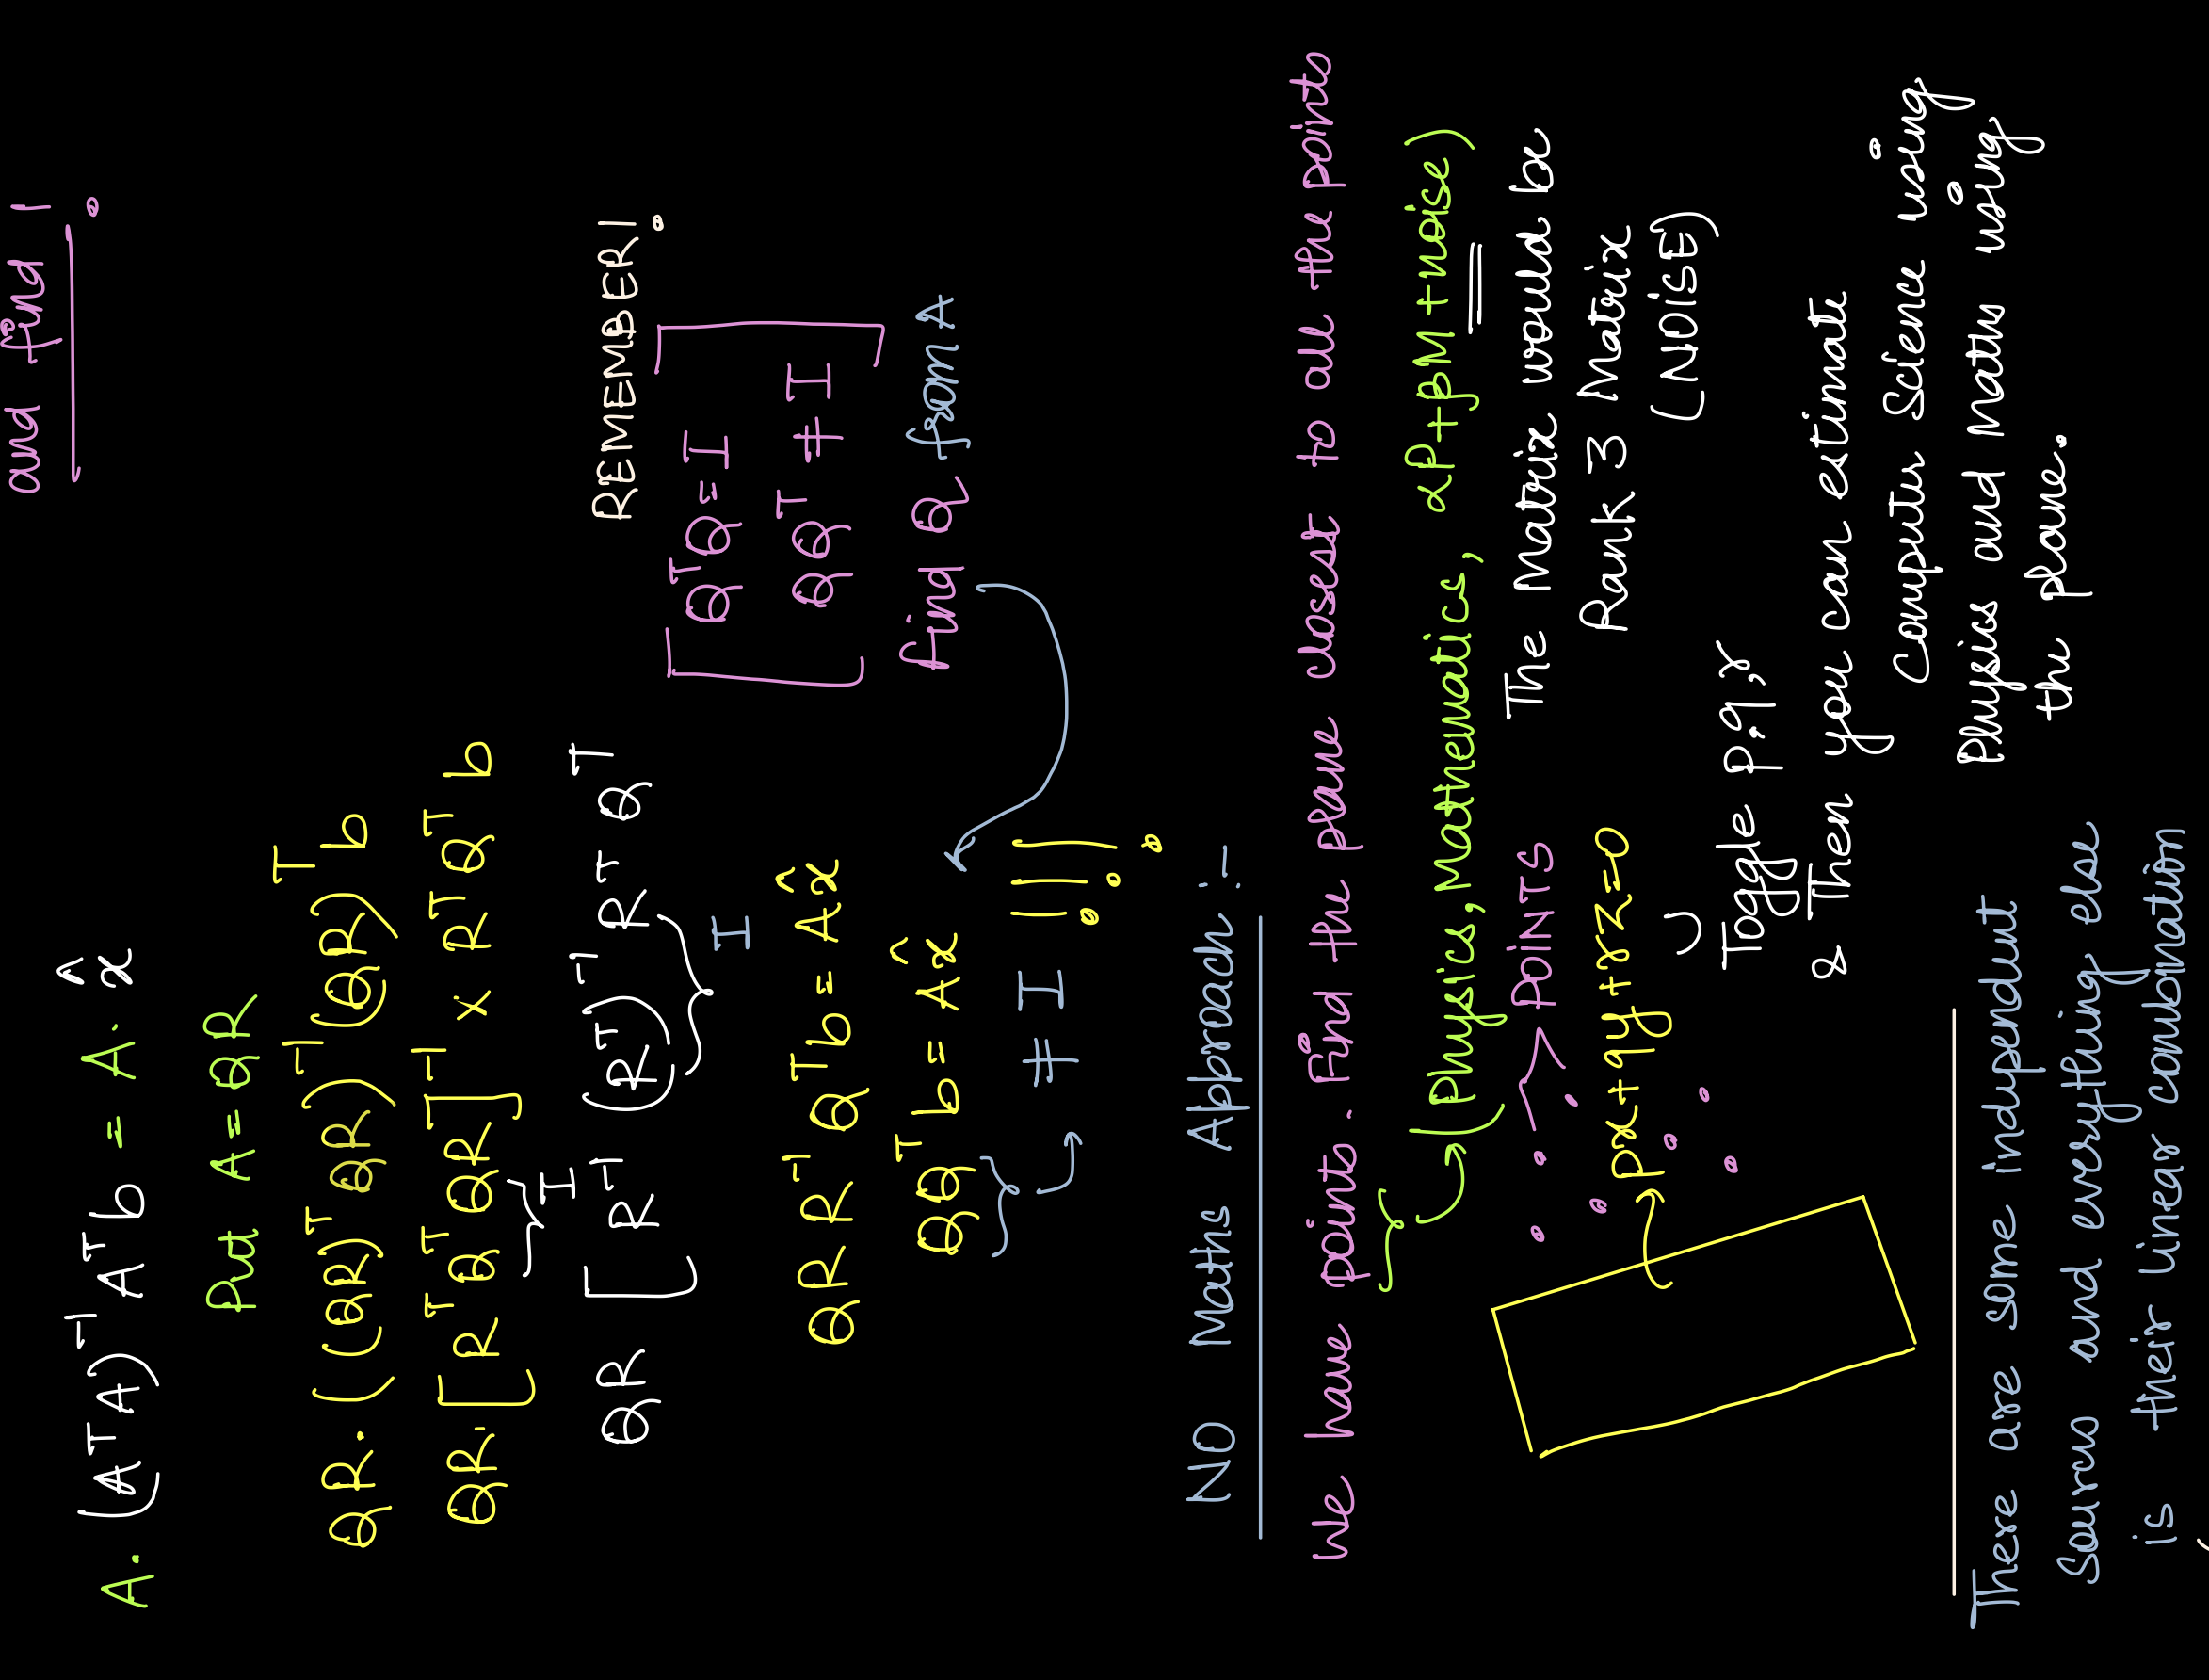 and find !
A. (AᵀA)⁻¹ Aᵀb = A. x̂
Put A = QR
QR. ((QR)ᵀ QR)⁻¹ (QR)ᵀ b
QR. [RᵀQᵀQR]⁻¹ x RᵀQᵀ b
I
QR [ R⁻¹ (Rᵀ)⁻¹ Rᵀ Qᵀ
I
QR R⁻¹ Qᵀb = Ax̂
QQᵀb = Ax̂
≠ I !!!
REMEMBER!
[QᵀQ = I
QQᵀ ≠ I]
find Q from A
NO Maths Approach :-
We have points. Find the plane closest to all the points
(Physics, Mathematics, αP+βM+noise)
POINTS
px+qy+rz=0
The Matrix would be
Rank 3 Matrix
(NOISE)
Toggle p,q,r
& Then you can estimate
Computer Science using
Physics and Maths using
the plane.
There are some independent
sources and everything else
is their linear combination